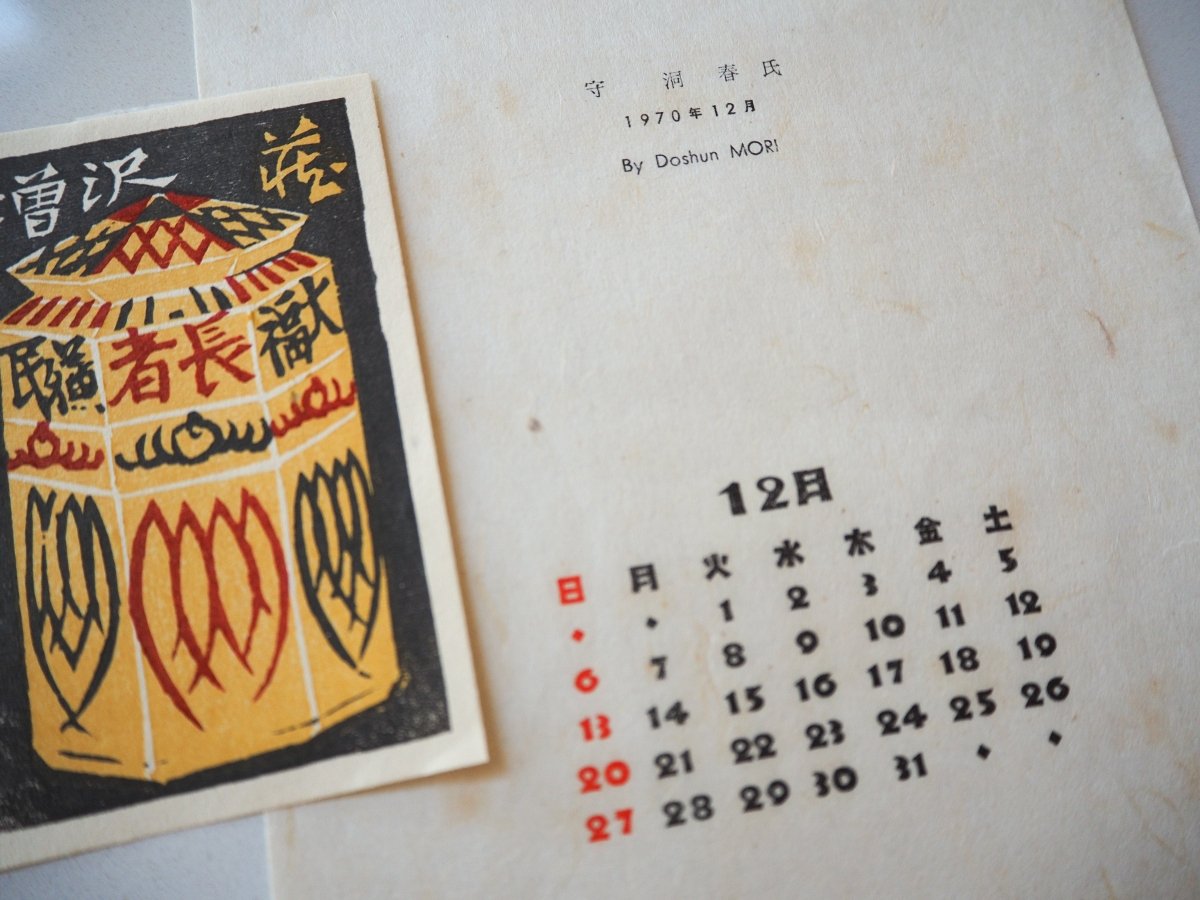 守　洞春氏
1970年12月
By Doshun MORI
増沢
蔵
大福
長者
蘇民
12月
日 月 火 水 木 金 土
♦ ♦ 1 2 3 4 5
6 7 8 9 10 11 12
13 14 15 16 17 18 19
20 21 22 23 24 25 26
27 28 29 30 31 ♦ ♦